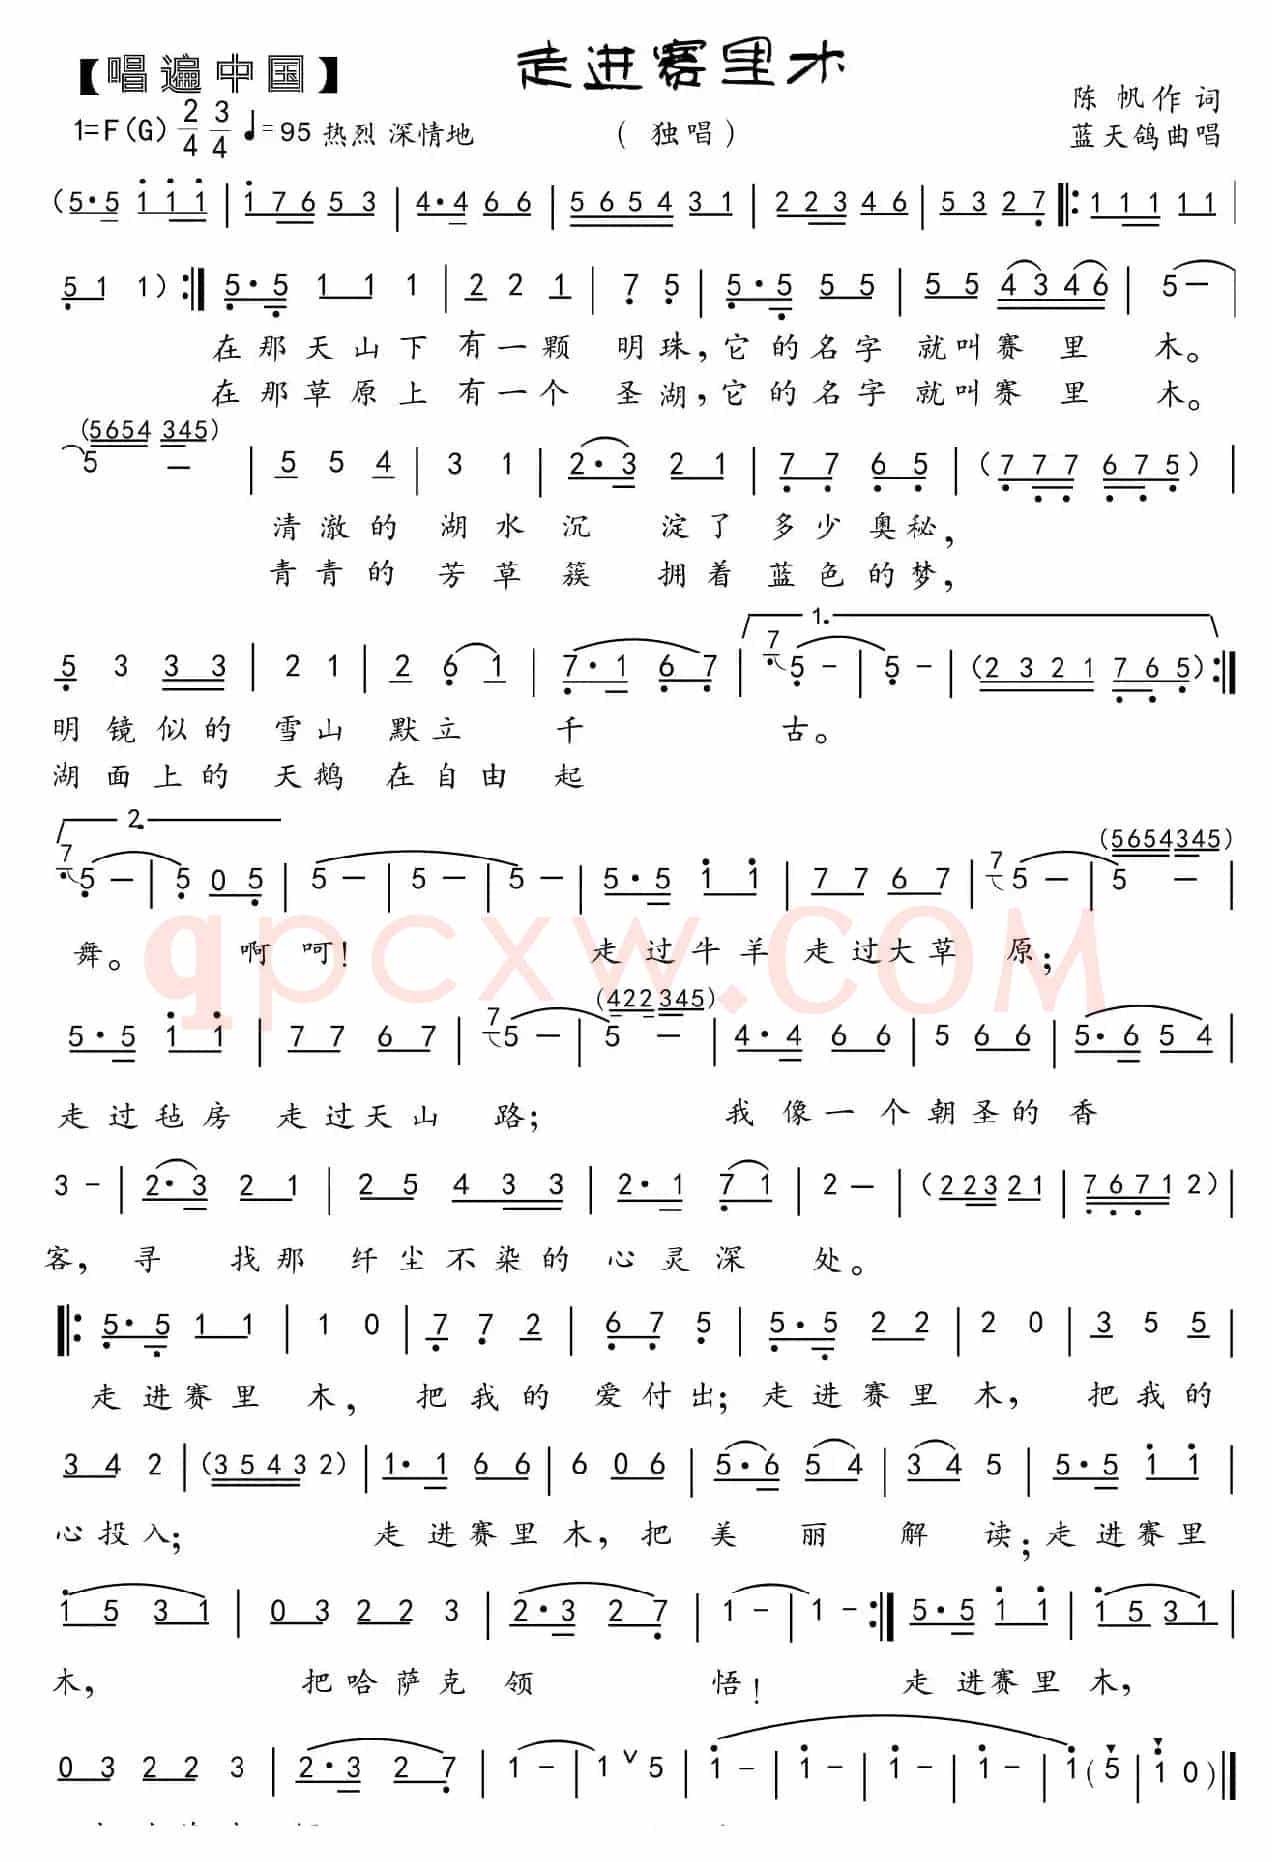 【唱遍中国】
走进赛里木
陈 帆作 词
1=F(G) 2/4 3/4 ♩=95 热烈 深情地
(独唱)
蓝天鸽曲唱
(5·5 111 | 176 53 | 4·4 66 | 5654 31 | 223 46 | 53 27 ‖: 111 11 |
51 1) :‖ 5·5 11 1 | 2 2 1 | 7 5 | 5·5 55 | 55 4346 | 5— |
在那天山下有一颗 明珠,它的名字 就叫赛里 木。
在那草原上有一个 圣湖,它的名字 就叫赛里 木。
(5654 345)
5 — | 5 5 4 | 3 1 | 2·3 21 | 77 65 | (777 675) |
清澈的 湖水沉 淀了 多少奥秘,
青青的 芳草簇 拥着 蓝色的梦,
1.
5 3 33 | 2 1 | 2 6 1 | 7·1 67 | 7 5 - | 5 - | (2321 765) :‖
明镜似的 雪山 默立 千 古。
湖面上的 天鹅 在自由 起
2.
(5654345)
7 5 — | 5 05 | 5 — | 5 — | 5 — | 5·5 11 | 77 67 | 7 5 — | 5 — |
舞。 啊呵! 走过牛羊 走过大草 原;
qpcxw.COM
(422 345)
5·5 11 | 77 67 | 7 5 — | 5 — | 4·4 66 | 5 66 | 5·6 54 |
走过毡房 走过天山 路; 我像一个朝圣的香
3 - | 2·3 21 | 25 433 | 2·1 71 | 2 — | (223 21 | 7671 2) |
客,寻 找那 纤尘不染的 心灵深 处。
‖: 5·5 11 | 1 0 | 7 7 2 | 67 5 | 5·5 22 | 2 0 | 3 5 5 |
走进赛里 木, 把我的 爱付出;走进赛里 木, 把我的
34 2 | (3543 2) | 1·1 66 | 6 06 | 5·6 54 | 34 5 | 5·5 11 |
心投入; 走进赛里木,把美丽 解 读;走进赛里
15 31 | 03 22 3 | 2·3 27 | 1 - | 1 - :‖ 5·5 11 | 1531 |
木, 把哈萨克 领 悟! 走进赛里木,
03 22 3 | 2·3 27 | 1 — | 1 ∨ 5 | 1 - | 1 - | 1 - | 1 - | 1 (5 | 1 0) ‖